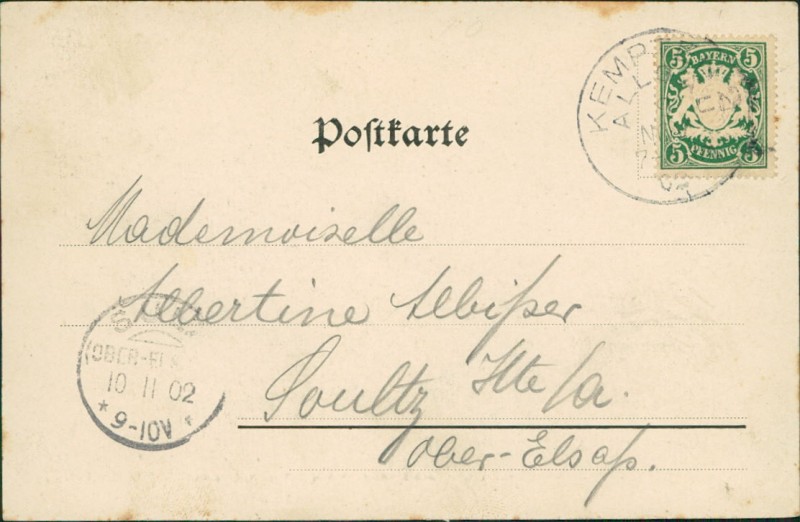 5 BAYERN 5
5 PFENNIG 5
KEMPTEN
Postkarte
Mademoiselle
Albertine Albißer
Soultz Hte/a.
Ober-Elsaß.
OBER-ELS
10 11 02
* 9-10V *